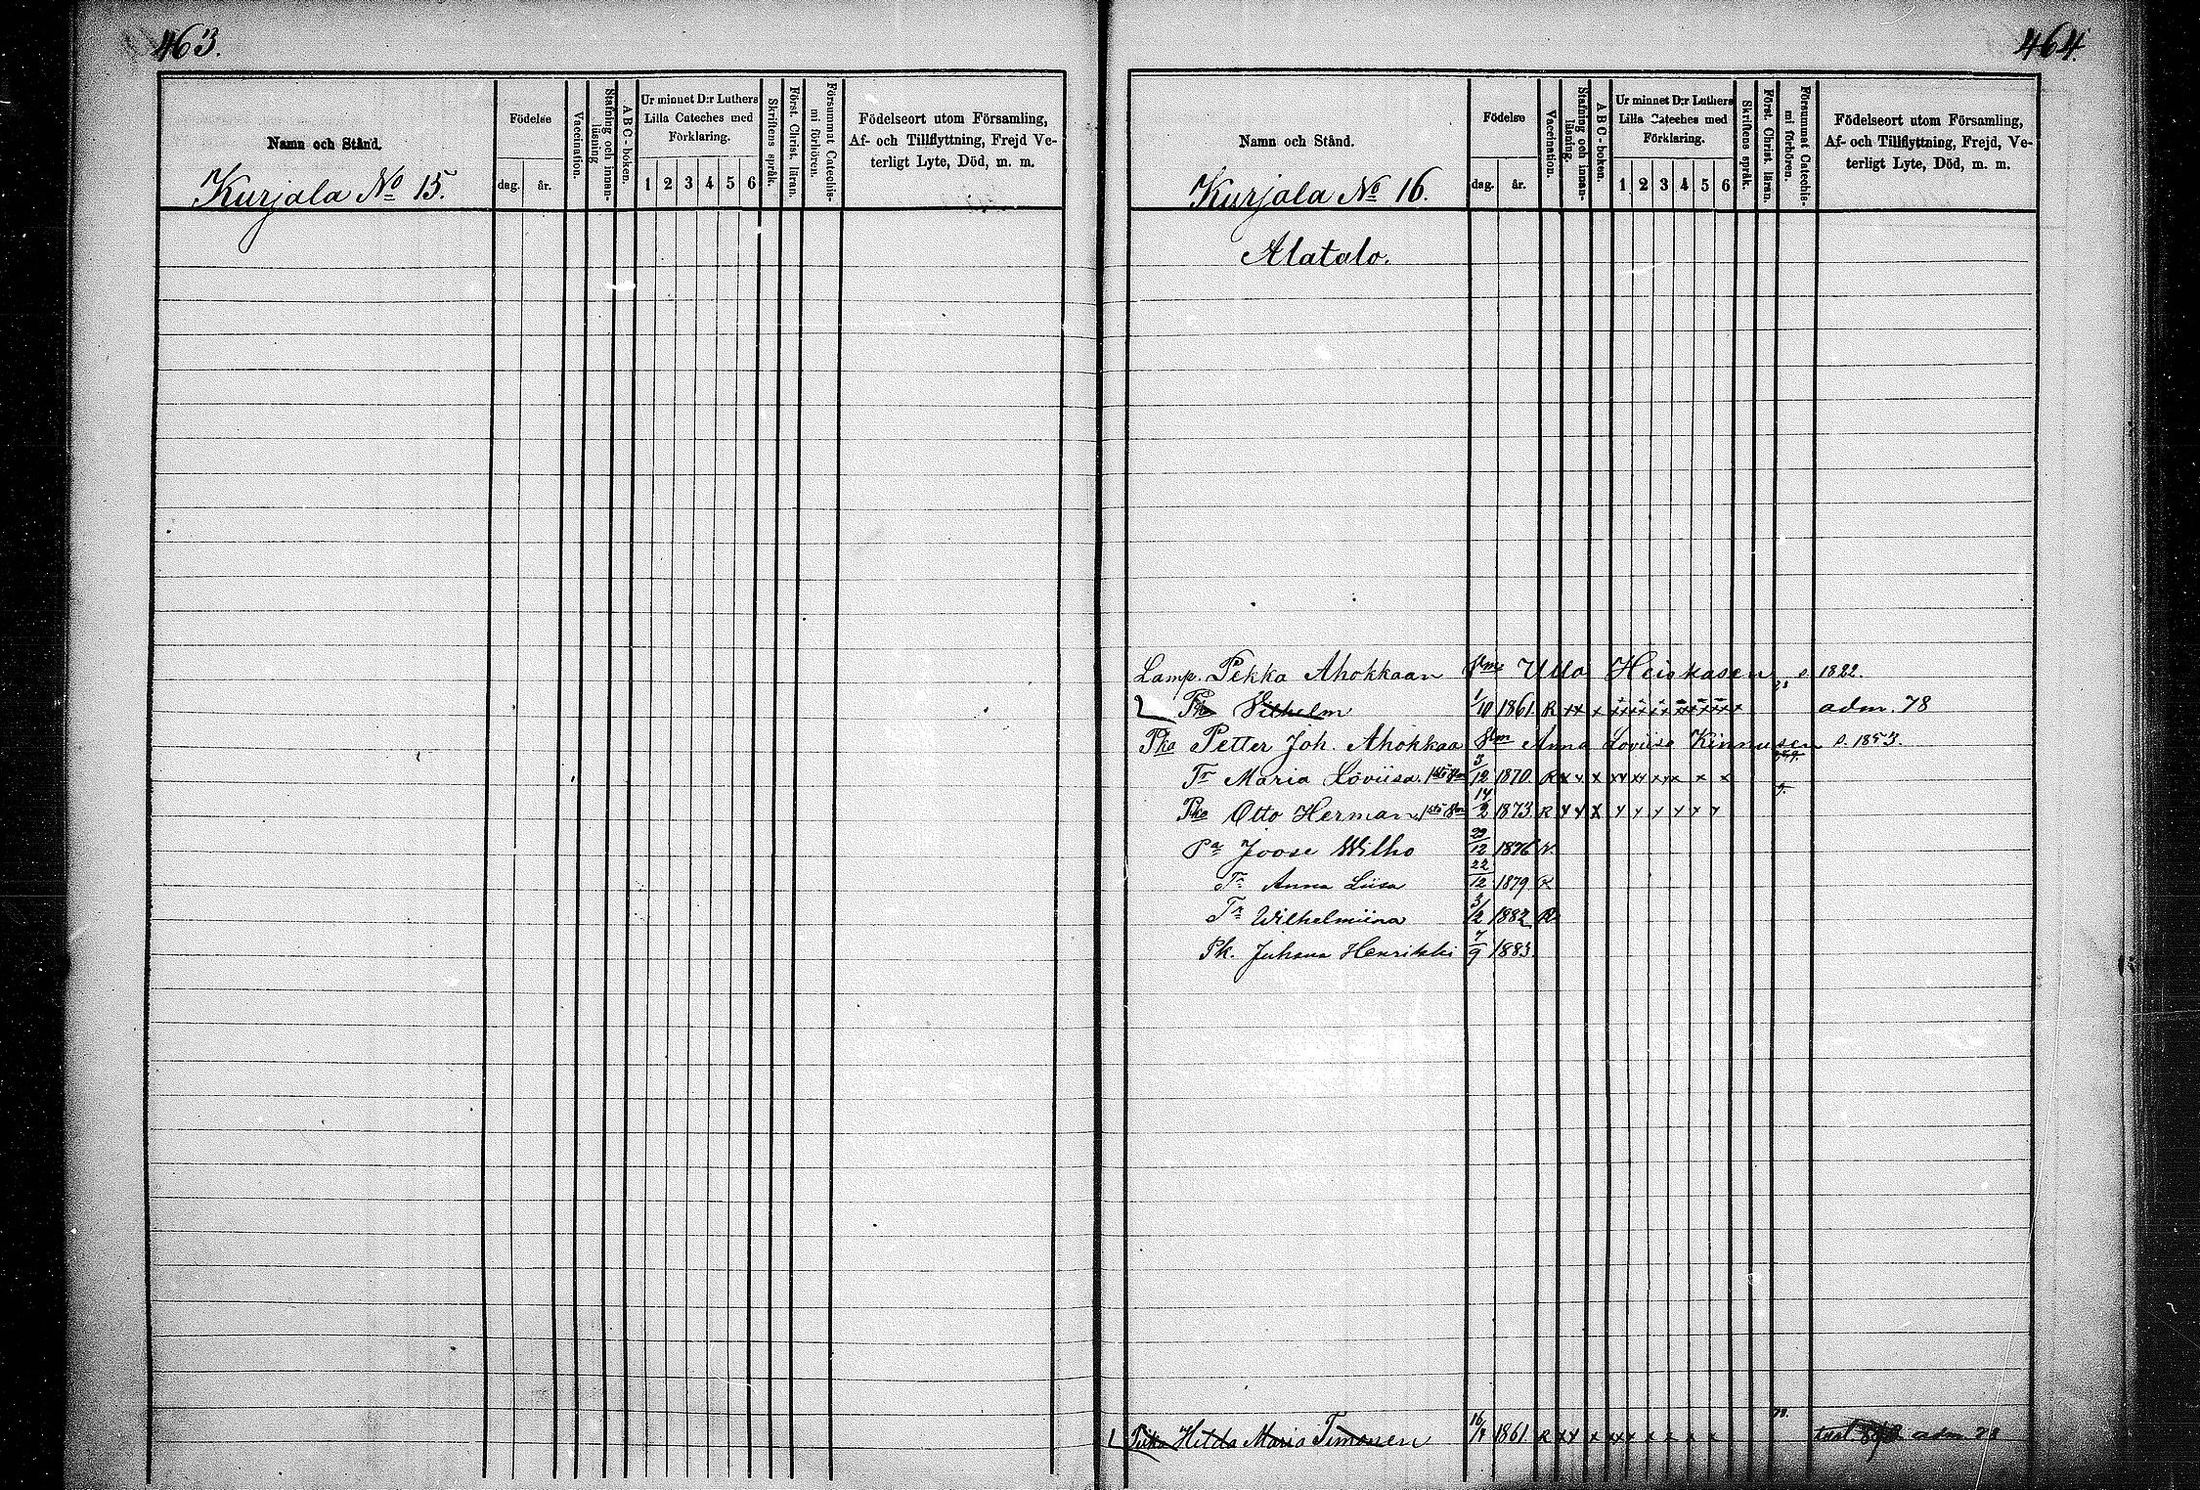 463.
Namn och Stånd.
Födelse
dag. år.
Vaccination.
Stafning och innanläsning
ABC-boken.
Ur minnet D:r Luthers
Lilla Cateches med
Förklaring.
1 2 3 4 5 6
Skriftens språk.
Först. Christ. läran.
Försummat Catechismi förhören.
Födelseort utom Församling,
Af- och Tillflyttning, Frejd Ve-
terligt Lyte, Död, m. m.
Kurjala No 15.
464.
Namn och Stånd.
Födelse
dag. år.
Vaccination.
Stafning och innanläsning.
ABC-boken.
Ur minnet D:r Luthers
Lilla Cateches med
Förklaring.
1 2 3 4 5 6
Skriftens språk.
Först. Christ. läran.
Försummat Catechismi förhören.
Födelseort utom Församling,
Af- och Tillflyttning, Frejd, Ve-
terligt Lyte, Död, m. m.
Kurjala No 16.
Alatalo.
Lamp. Pekka Ahokkaan Ulla Heiskasen s. 1822.
Vilhelm 1/10 1861 R xx x adm. 78
Pka Petter Joh. Ahokkaa Anna Loviisa Kinnusen s. 1853.
Tr Maria Loviisa 3/12 1870 R x x x xx xx xx x x
Pka Otto Herman 14/2 1873 R x x x x x x x x x
Pa Joose Wilho 29/12 1876 R
Tr Anna Liisa 22/12 1879 R
Tr Wilhelmiina 3/12 1882 R
Pk. Juhana Henrikki 7/9 1883
Hilda Maria Timonen 1861 R xx x xx x x x x adm 78